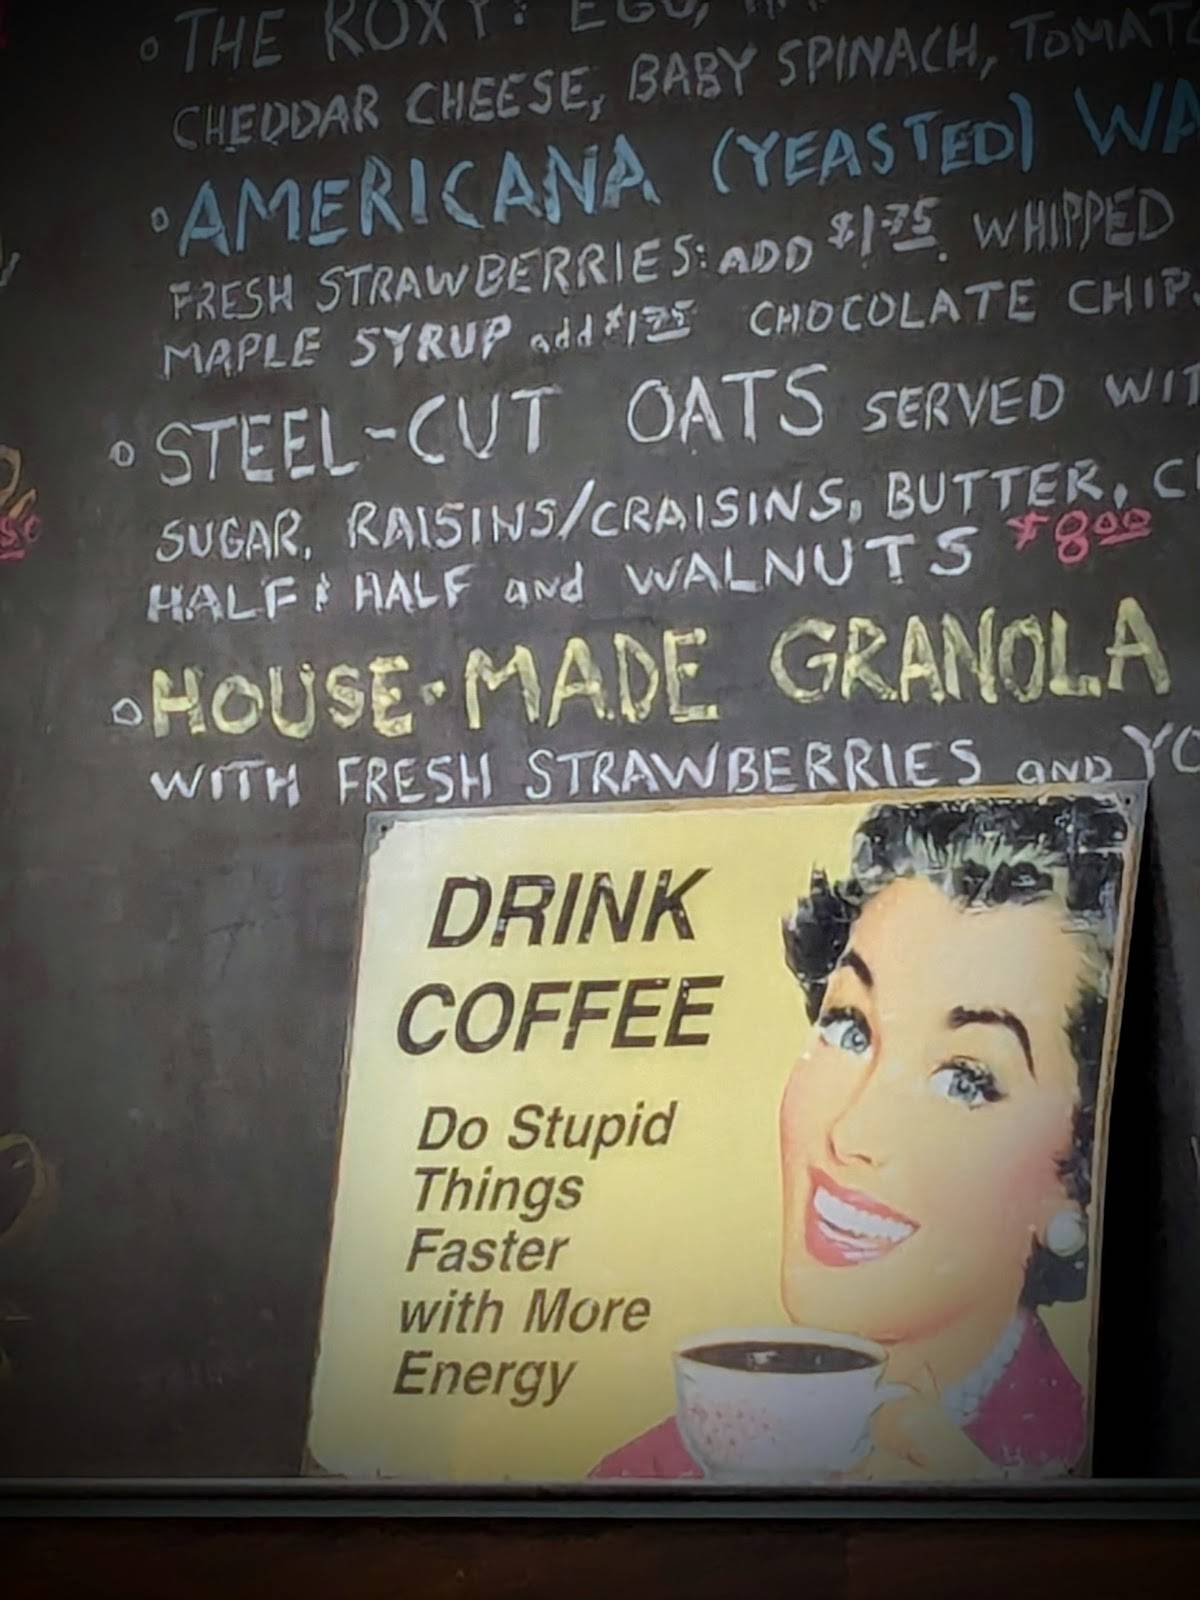 THE ROXY: EGG,
CHEDDAR CHEESE, BABY SPINACH,
AMERICANA (YEASTED)
FRESH STRAWBERRIES: ADD $1.75. WHIPPED
MAPLE SYRUP add $1.75 CHOCOLATE
STEEL-CUT OATS SERVED
SUGAR, RAISINS/CRAISINS, BUTTER,
HALF & HALF and WALNUTS $8.00
HOUSE-MADE GRANOLA
WITH FRESH STRAWBERRIES AND
DRINK
COFFEE
Do Stupid
Things
Faster
with More
Energy